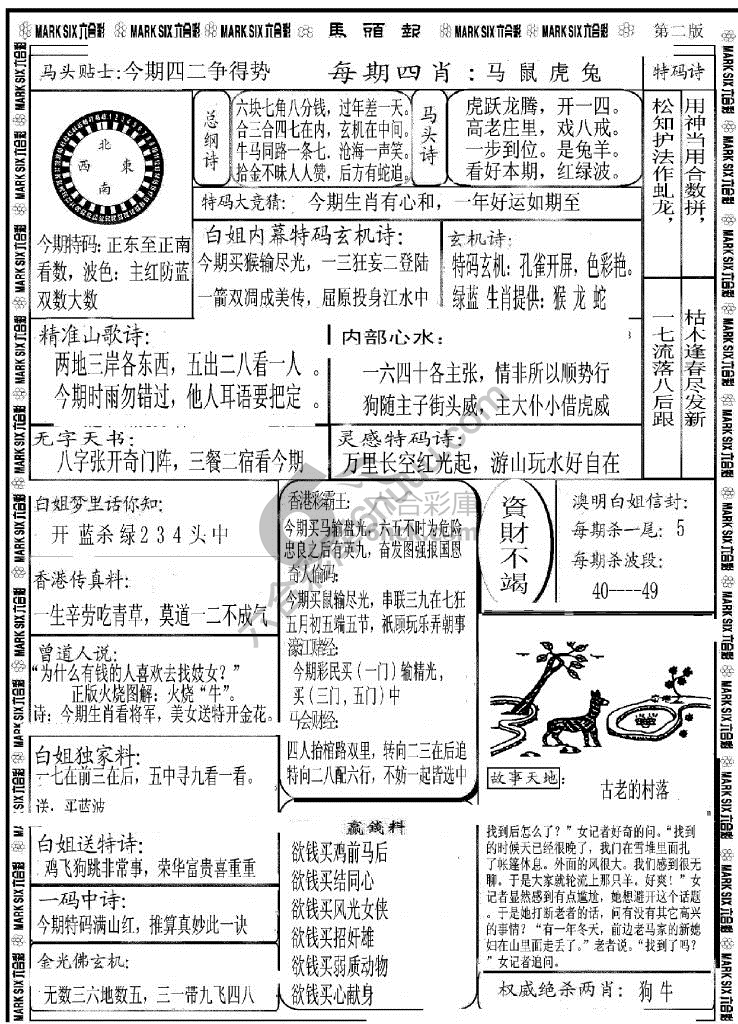 MARK SIX 六合彩 MARK SIX 六合彩 MARK SIX 六合彩 馬頭報 MARK SIX 六合彩 MARK SIX 六合彩 第二版
马头贴士:今期四二争得势 每期四肖:马鼠虎兔 特码诗
北
西 東
南
今期特码:正东至正南
看数，波色:主红防蓝
双数大数
总纲诗
六块七角八分钱，过年差一天。
合三合四七在内，玄机在中间。
牛马同路一条七，沧海一声笑。
拾金不昧人人赞，后方有蛇追。
马头诗
虎跃龙腾，开一四。
高老庄里，戏八戒。
一步到位。是兔羊。
看好本期，红绿波。
用神当用合数拼，
松知护法作虬龙，
枯木逢春尽发新
一七流落八后跟
特码大竞猜: 今期生肖有心和，一年好运如期至
白姐内幕特码玄机诗:
今期买猴输尽光，一三狂妄二登陆
一箭双凋成美传，屈原投身江水中
玄机诗:
特码玄机:孔雀开屏，色彩艳。
绿蓝 生肖提供:猴 龙 蛇
精准山歌诗:
两地三岸各东西，五出二八看一人 。
今期时雨勿错过，他人耳语要把定 。
内部心水:
一六四十各主张，情非所以顺势行
狗随主子街头威，主大仆小借虎威
无字天书:
八字张开奇门阵，三餐二宿看今期
灵感特码诗:
万里长空红光起，游山玩水好自在
白姐梦里话你知:
开 蓝杀 绿2 3 4 头中
香港传真料:
一生辛劳吃青草，莫道一二不成气
曾道人说:
“为什么有钱的人喜欢去找妓女？”
正版火烧图解:火烧“牛”。
诗:今期生肖看将军，美女送特开金花。
白姐独家料:
一七在前三在后，五中寻九看一看。
送，买蓝波
香港彩霸王:
今期买马输盘光，六五不时为危险
忠良之后有英九，奋发图强报国恩
奇人偷码:
今期买鼠输尽光，串联三九在七狂
五月初五端五节，祇顾玩乐弄朝事
濠江赌经:
今期彩民买（一门）输精光，
买（三门，五门）中
马会财经:
四人抬棺路双里，转向二三在后追
特向二八配六行，不妨一起皆选中
資財不竭
澳明白姐信封:
每期杀一尾: 5
每期杀波段:
40----49
故事天地:
古老的村落
白姐送特诗:
鸡飞狗跳非常事，荣华富贵喜重重
一码中诗:
今期特码满山红，推算真妙此一诀
金光佛玄机:
无数三六地数五，三一带九飞四八
赢钱料
欲钱买鸡前马后
欲钱买结同心
欲钱买风光女侠
欲钱买招奸雄
欲钱买弱质动物
欲钱买心献身
找到后怎么了？”女记者好奇的问。“找到
的时候天已经很晚了，我们在雪堆里面扎
了帐篷休息。外面的风很大。我们感到很无
聊。于是大家就轮流上那只羊。好爽！”女
记者显然感到有点尴尬，她想避开这个话题
。于是她打断老者的话，问有没有其它高兴
的事情？“有一年冬天，前边老马家的新媳
妇在山里面走丢了。”老者说。“找到了吗？
”女记者追问。
权威绝杀两肖: 狗 牛